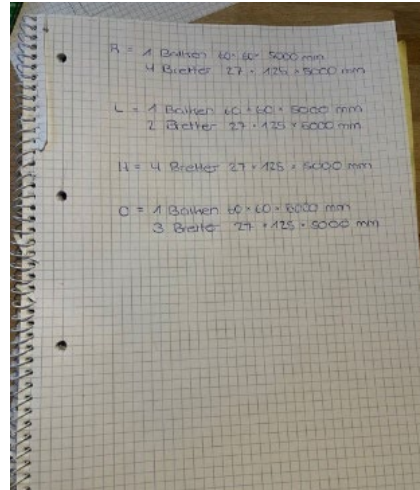 R = 1 Balken 60 × 60 × 5000 mm
4 Bretter 27 × 125 × 5000 mm
L = 1 Balken 60 × 60 × 5000 mm
2 Bretter 27 × 125 × 5000 mm
H = 4 Bretter 27 × 125 × 5000 mm
O = 1 Balken 60 × 60 × 5000 mm
3 Bretter 27 × 125 × 5000 mm